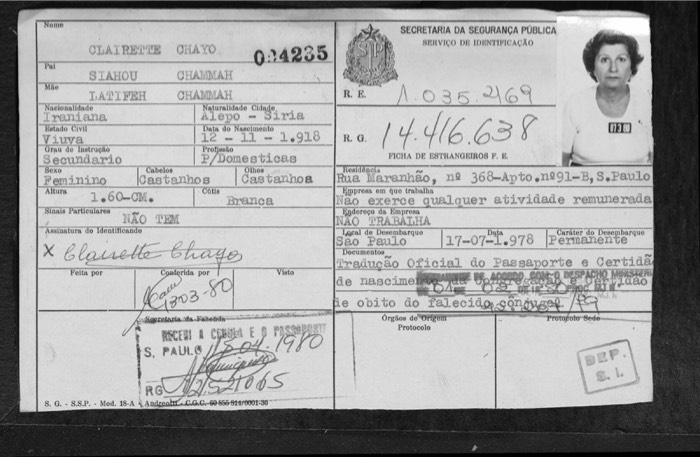 Nome
CLAIRETTE CHAYO
004235
Pai
SIAHOU CHAMMAH
Mãe
LATIFEH CHAMMAH
Nacionalidade
Iraniana
Naturalidade Cidade
Alepo - Siria
Estado Civil
Viuva
Data do Nascimento
12 - 11 - 1.918
Grau de Instrução
Secundario
Profissão
P/Domesticas
Sexo
Feminino
Cabelos
Castanhos
Olhos
Castanhos
Altura
1.60-CM.
Cútis
Branca
Sinais Particulares
NÃO TEM
Assinatura do Identificando
X Clairette Chayo
Feita por
Conferida por
Visto
1303-80
Secretaria da Fazenda
RECEBI A CEDULA E O PASSAPORTE
S. PAULO 15 04 1980
RG
S. G. - S.S.P. - Mod. 18-A - Andreotti - C.G.C. 60 855 914/0001-30
SECRETARIA DA SEGURANÇA PÚBLICA
SERVIÇO DE IDENTIFICAÇÃO
SP
R. E. 1.035.469
R. G. 14.416.638
FICHA DE ESTRANGEIROS F. E.
Residência
Rua Maranhão, nº 368-Apto.nº91-B, S.Paulo
Empresa em que trabalha
Não exerce qualquer atividade remunerada
Endereço da Empresa
NÃO TRABALHA
Local de Desembarque
São Paulo
Data
17-07-1.978
Caráter do Desembarque
Permanente
Documentos
Tradução Oficial do Passaporte e Certidã
de nascimento da Congregação e Certidão
DE ACORDO COM O DESPACHO MINISTERIAL
de obito do falecido cônjuge
Órgãos de Origem
Protocolo
Protocolo Sede
DEP.
S. I.